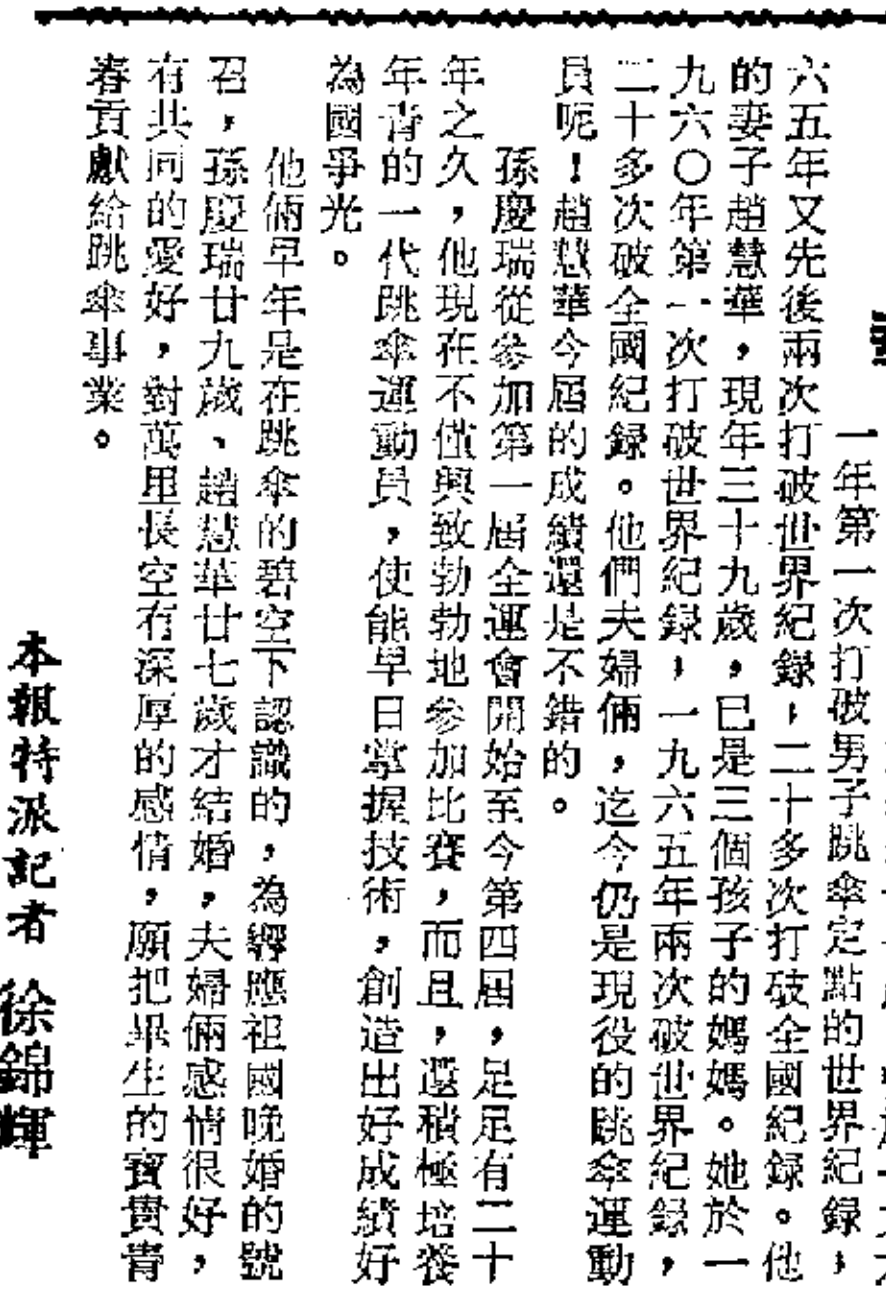 一年第一次打破男子跳傘定點的世界紀錄，
六五年又先後兩次打破世界紀錄，二十多次打破全國紀録。他
的妻子趙慧華，現年三十九歲，已是三個孩子的媽媽。她於一
九六〇年第一次打破世界紀録，一九六五年兩次破世界紀録，
二十多次破全國紀録。他們夫婦倆，迄今仍是現役的跳傘運動
員呢！趙慧華今屆的成績還是不錯的。
孫慶瑞從參加第一屆全運會開始至今第四屆，足足有二十
年之久，他現在不僅興致勃勃地參加比賽，而且，還積極培養
年青的一代跳傘運動員，使能早日掌握技術，創造出好成績好
為國爭光。
他倆早年是在跳傘的碧空下認識的，為響應祖國晚婚的號
召，孫慶瑞廿九歲、趙慧華廿七歲才結婚，夫婦倆感情很好，
有共同的愛好，對萬里長空有深厚的感情，願把畢生的寶貴青
春貢獻給跳傘事業。
本報特派記者 徐錦輝